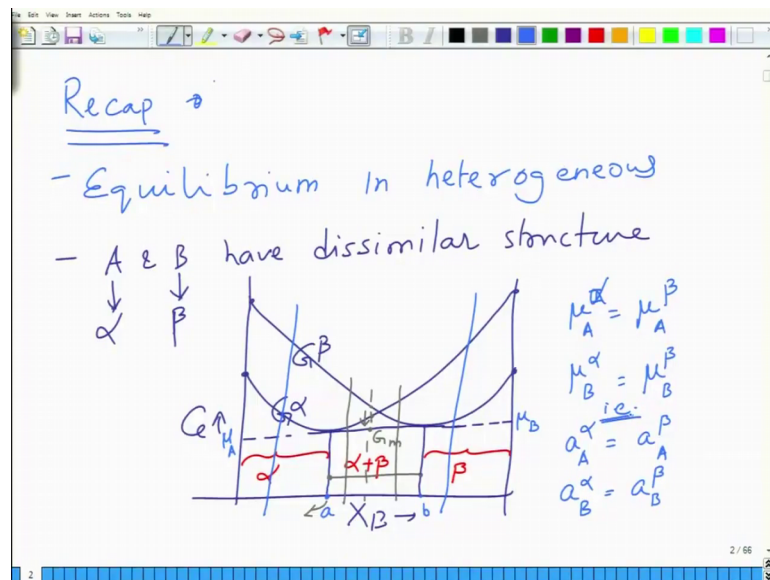 File Edit View Insert Actions Tools Help
B I
Recap →
- Equilibrium in heterogeneous
- A & B have dissimilar structure
↓ ↓
α β
G^β
G^α
G ↑
μ_A
G_m
μ_B
α
α+β
β
← a X_B → b
μ_A^α = μ_A^β
μ_B^α = μ_B^β
i.e.
a_A^α = a_A^β
a_B^α = a_B^β
2 / 66
2